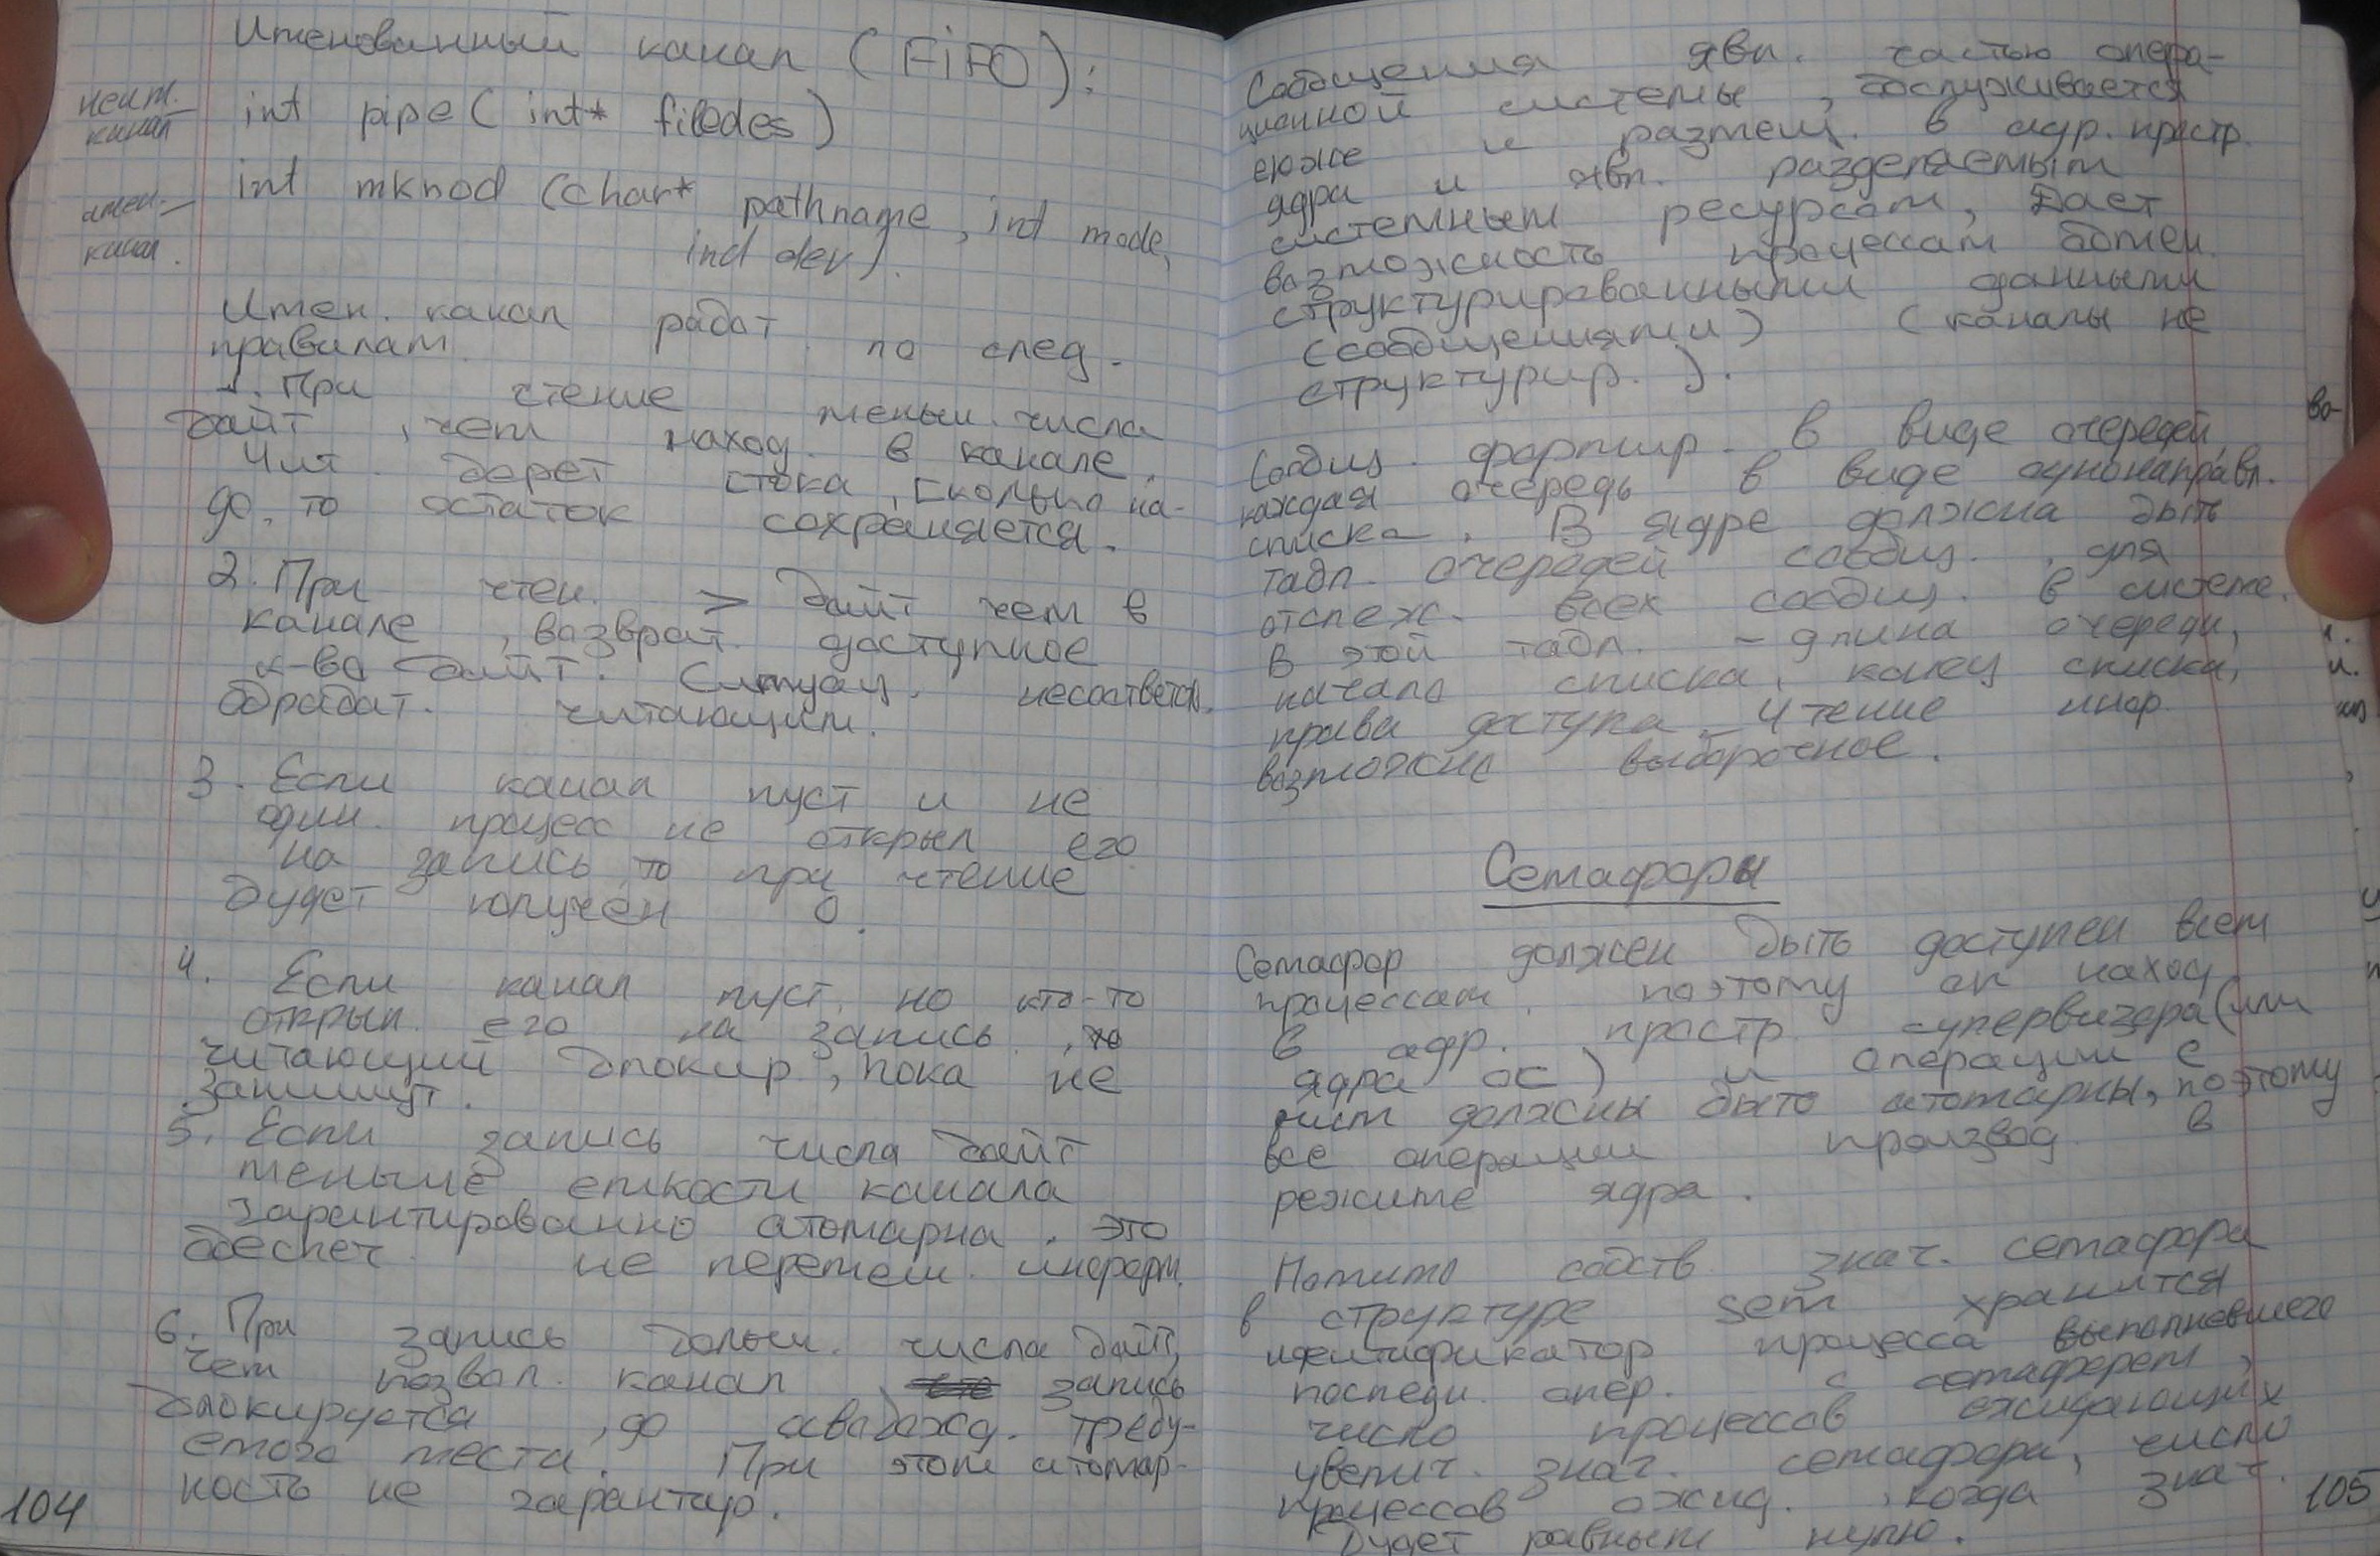 Именованный канал (FiFO):
неим. канал — int pipe( int* filedes)
имен. канал. — int mknod (char* pathname, int mode,
ind dev).
Имен. канал работ. по след.
правилам.
1. При чтение меньш. числа
байт, чем наход. в канале.
Чит. берет стока, сколько на-
до, то остаток сохраняется.
2. При чтен. > байт чем в
канале, возврат. доступное
к-во байт. Ситуац. несоответств.
обработ. читающим.
3. Если канал пуст и не
один. процесс не открыл его
на запись, то при чтение
будет получен 0.
4. Если канал пуст, но кто-то
открыл его на запись, то
читающий блокир, пока не
запишут.
5. Если запись числа байт
меньше емкости канала
гарантированно атомарна. это
обеспеч. не перемеш. информ.
6. При запись больш. числа байт,
чем позвол. канал запись
блокируется, до освобожд. требу-
емого места. При этом атомар-
ность не гарантир.
104
Сообщения явл. частью опера-
ционной системы, обслуживается
ею же и размещ. в адр. простр.
ядра и явл. разделяемым
системным ресурсом, Дает
возможность процессам обмен.
структурированными данными
(сообщениями) (каналы не
структурир.).
Сообщ. формир. в виде очередей,
каждая очередь в виде однонаправл.
списка. В ядре должна быть
табл. очередей сообщ., для
отслеж. всех сообщ. в системе.
В этой табл. - длина очереди,
начало списка, конец списка,
права доступа. Чтение инфор.
возможно выборочное.
Семафоры
Семафор должен быть доступен всем
процессам, поэтому он наход.
в адр. простр. супервизора (или
ядра ОС) и операции с
ним должны быть атомарны, поэтому
все операции производ. в
режиме ядра.
Помимо собств. знач. семафора
в структуре sem хранится
идентификатор процесса выполневшего
последн. опер. с семафорем,
число процессов ожидающих
увелич. знач. семафора, число
процессов ожид., когда знач.
будет равным нулю.
105